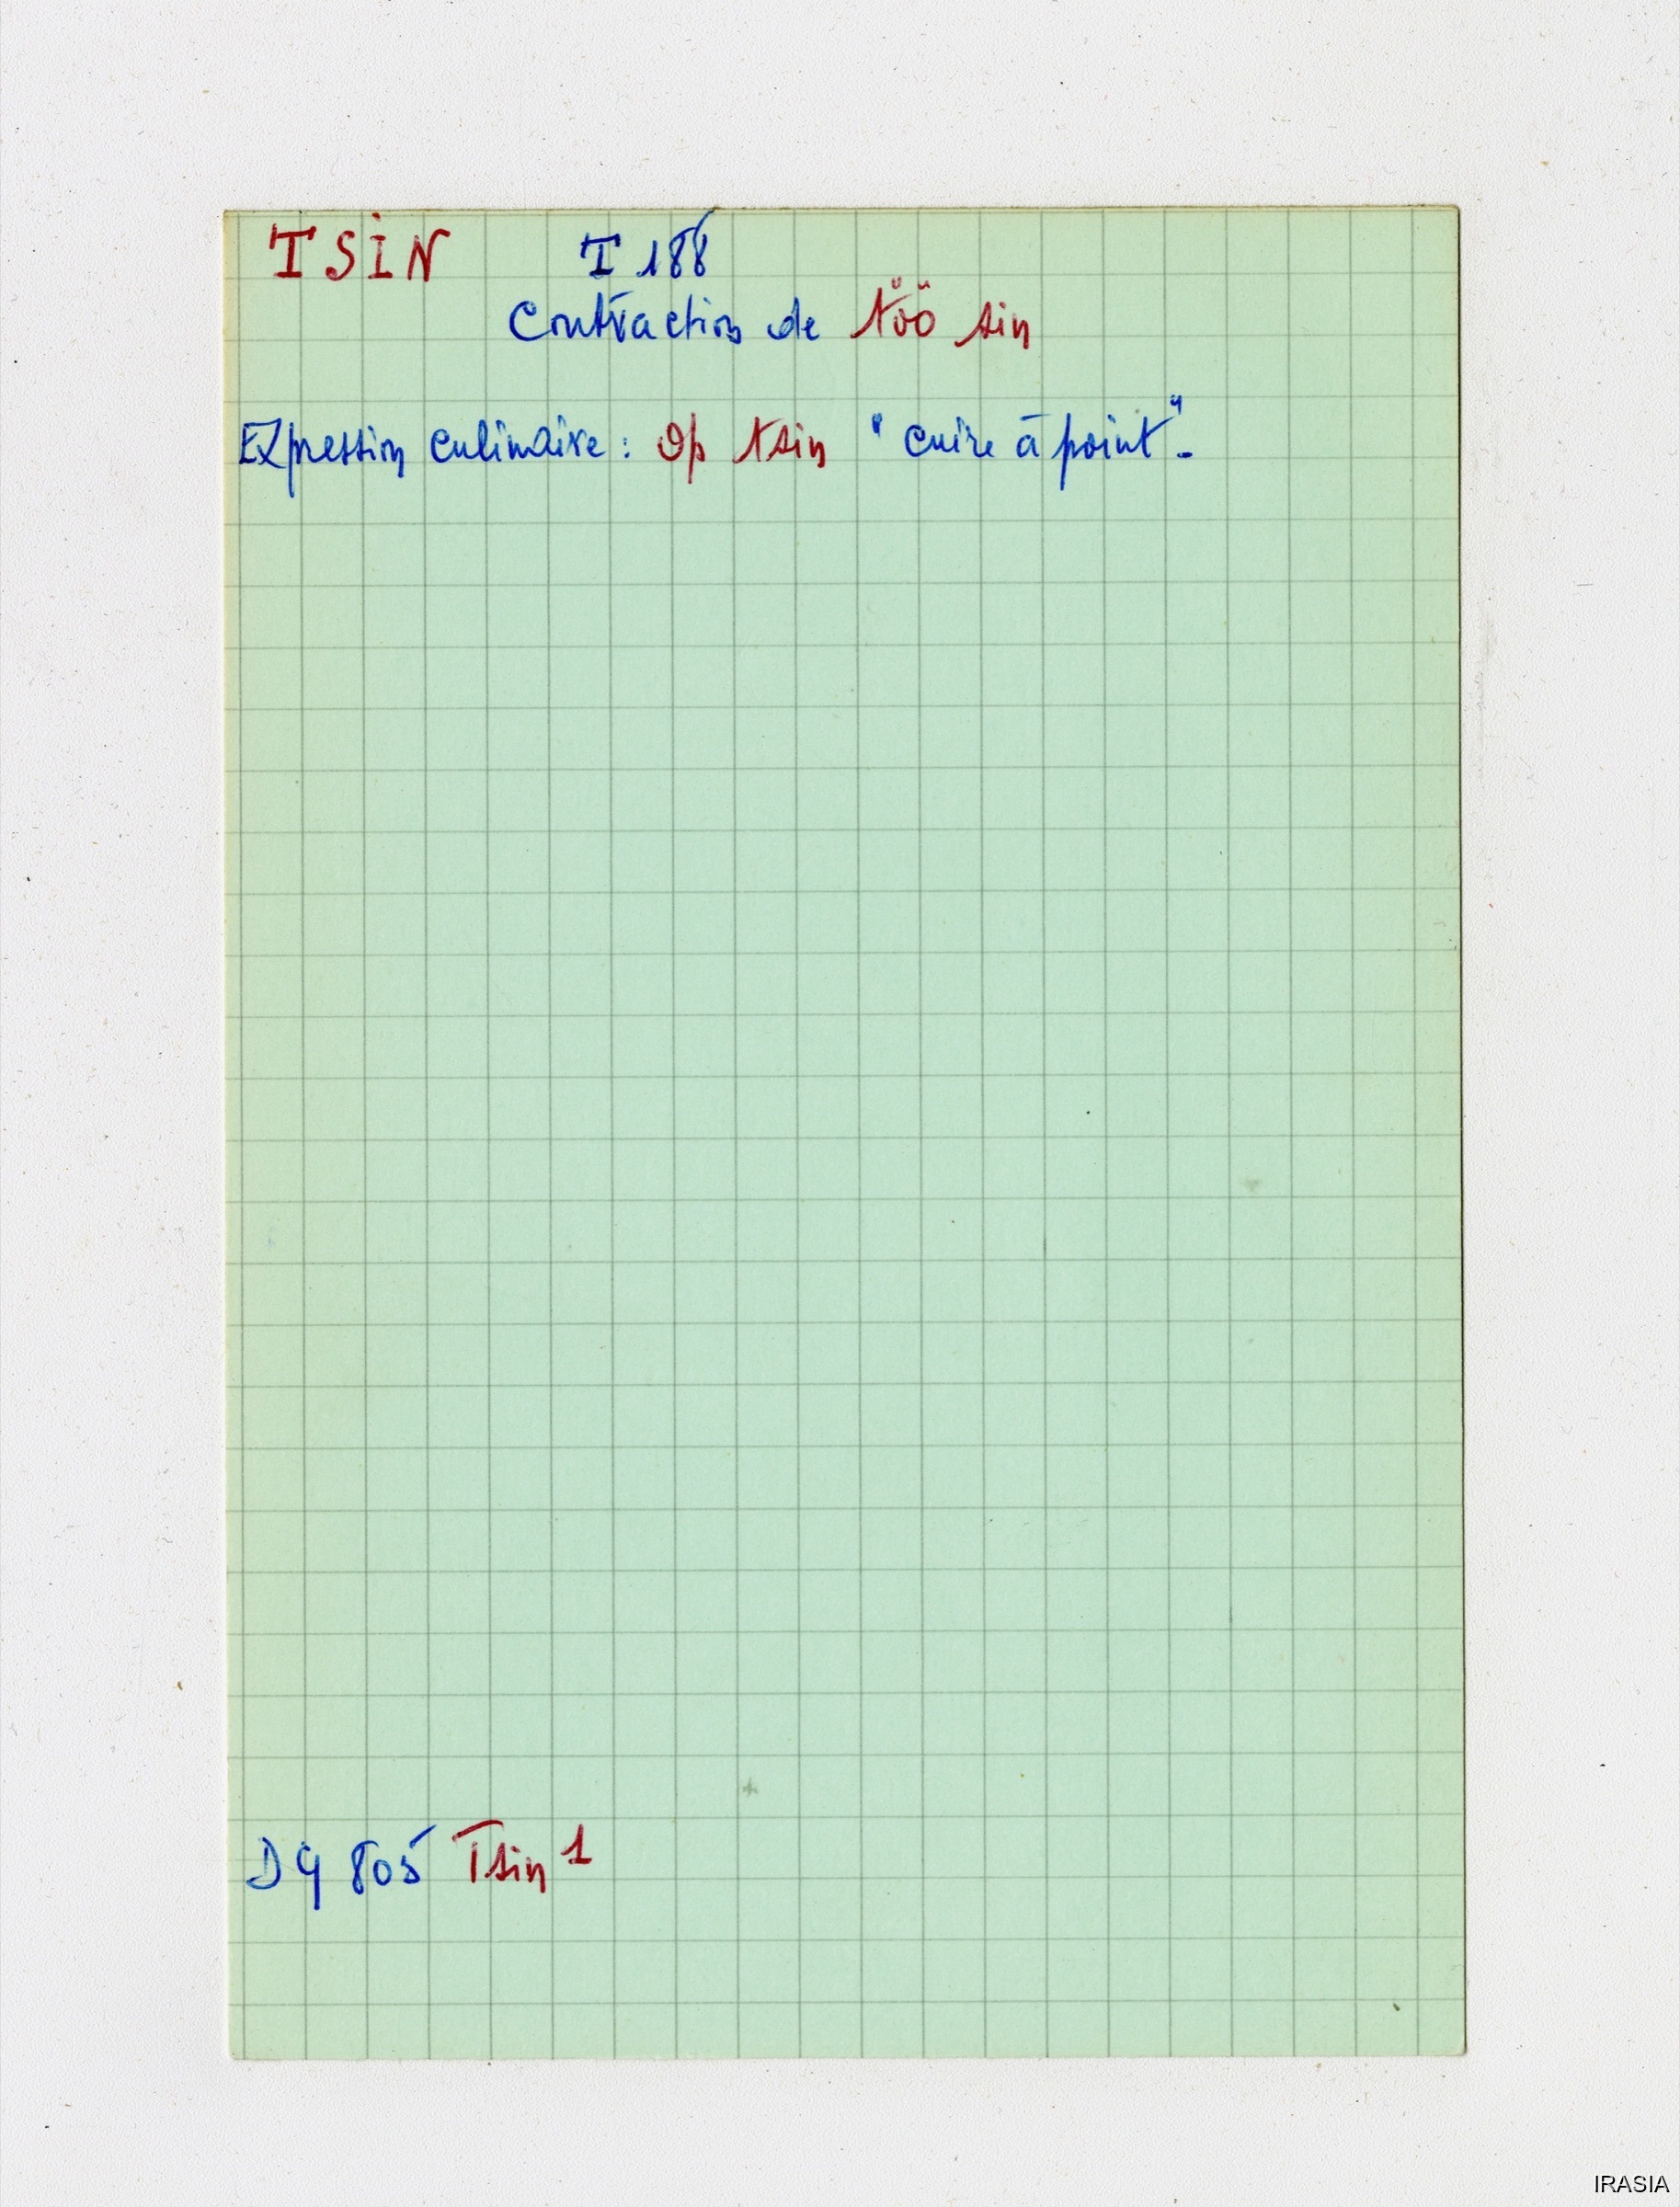 TSIN T 188
Contraction de töö sin
Expression culinaire : op tsin "cuire à point".
DG 805 Tsin 1
IRASIA